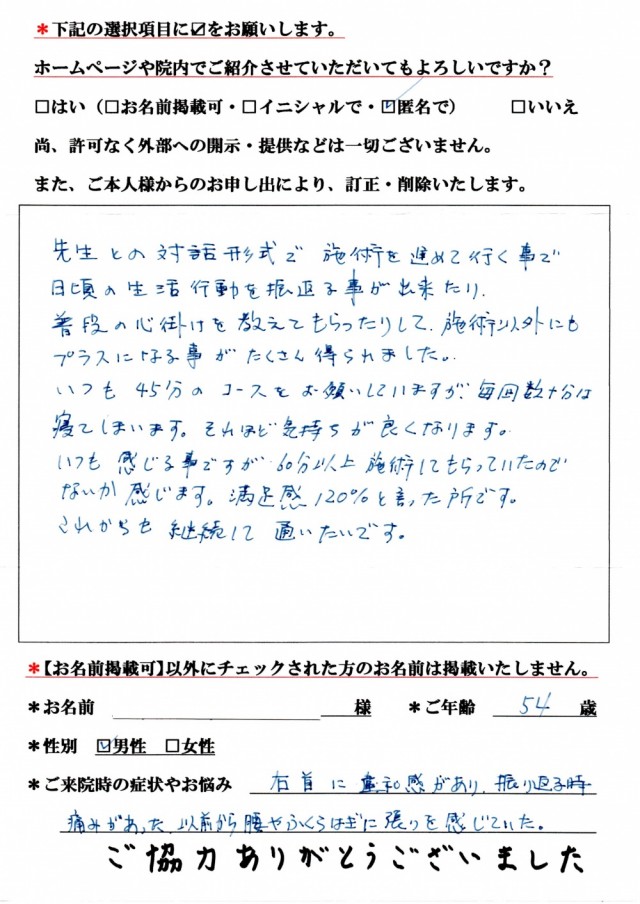 *下記の選択項目に☑をお願いします。
ホームページや院内でご紹介させていただいてもよろしいですか？
□はい（□お名前掲載可・□イニシャルで・☑匿名で）　□いいえ
尚、許可なく外部への開示・提供などは一切ございません。
また、ご本人様からのお申し出により、訂正・削除いたします。
先生との対話形式で 施術を進めて行く事で
日頃の生活行動を振返る事が出来たり、
普段の心掛けを教えてもらったりして、施術以外にも
プラスになる事がたくさん得られました。
いつも 45分のコースをお願いしていますが、毎回数十分は
寝てしまいます。それほど気持ちが良くなります。
いつも 感じる事ですが 60分以上 施術してもらっていたので
ないか 感じます。満足感 120%と言った所です。
これからも 継続して 通いたいです。
*【お名前掲載可】以外にチェックされた方のお名前は掲載いたしません。
*お名前　様　*ご年齢　54　歳
*性別　☑男性　□女性
*ご来院時の症状やお悩み　右首に 違和感があり、振り返る時
痛みがあった 以前から腰やふくらはぎに張りを感じていた。
ご協力ありがとうございました